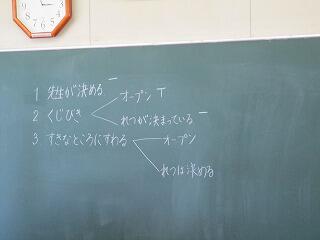 1 先生が決める ー
オープン T
2 くじびき
れつが決まっている ー
3 すきなところにすわる
オープン
れつは決める